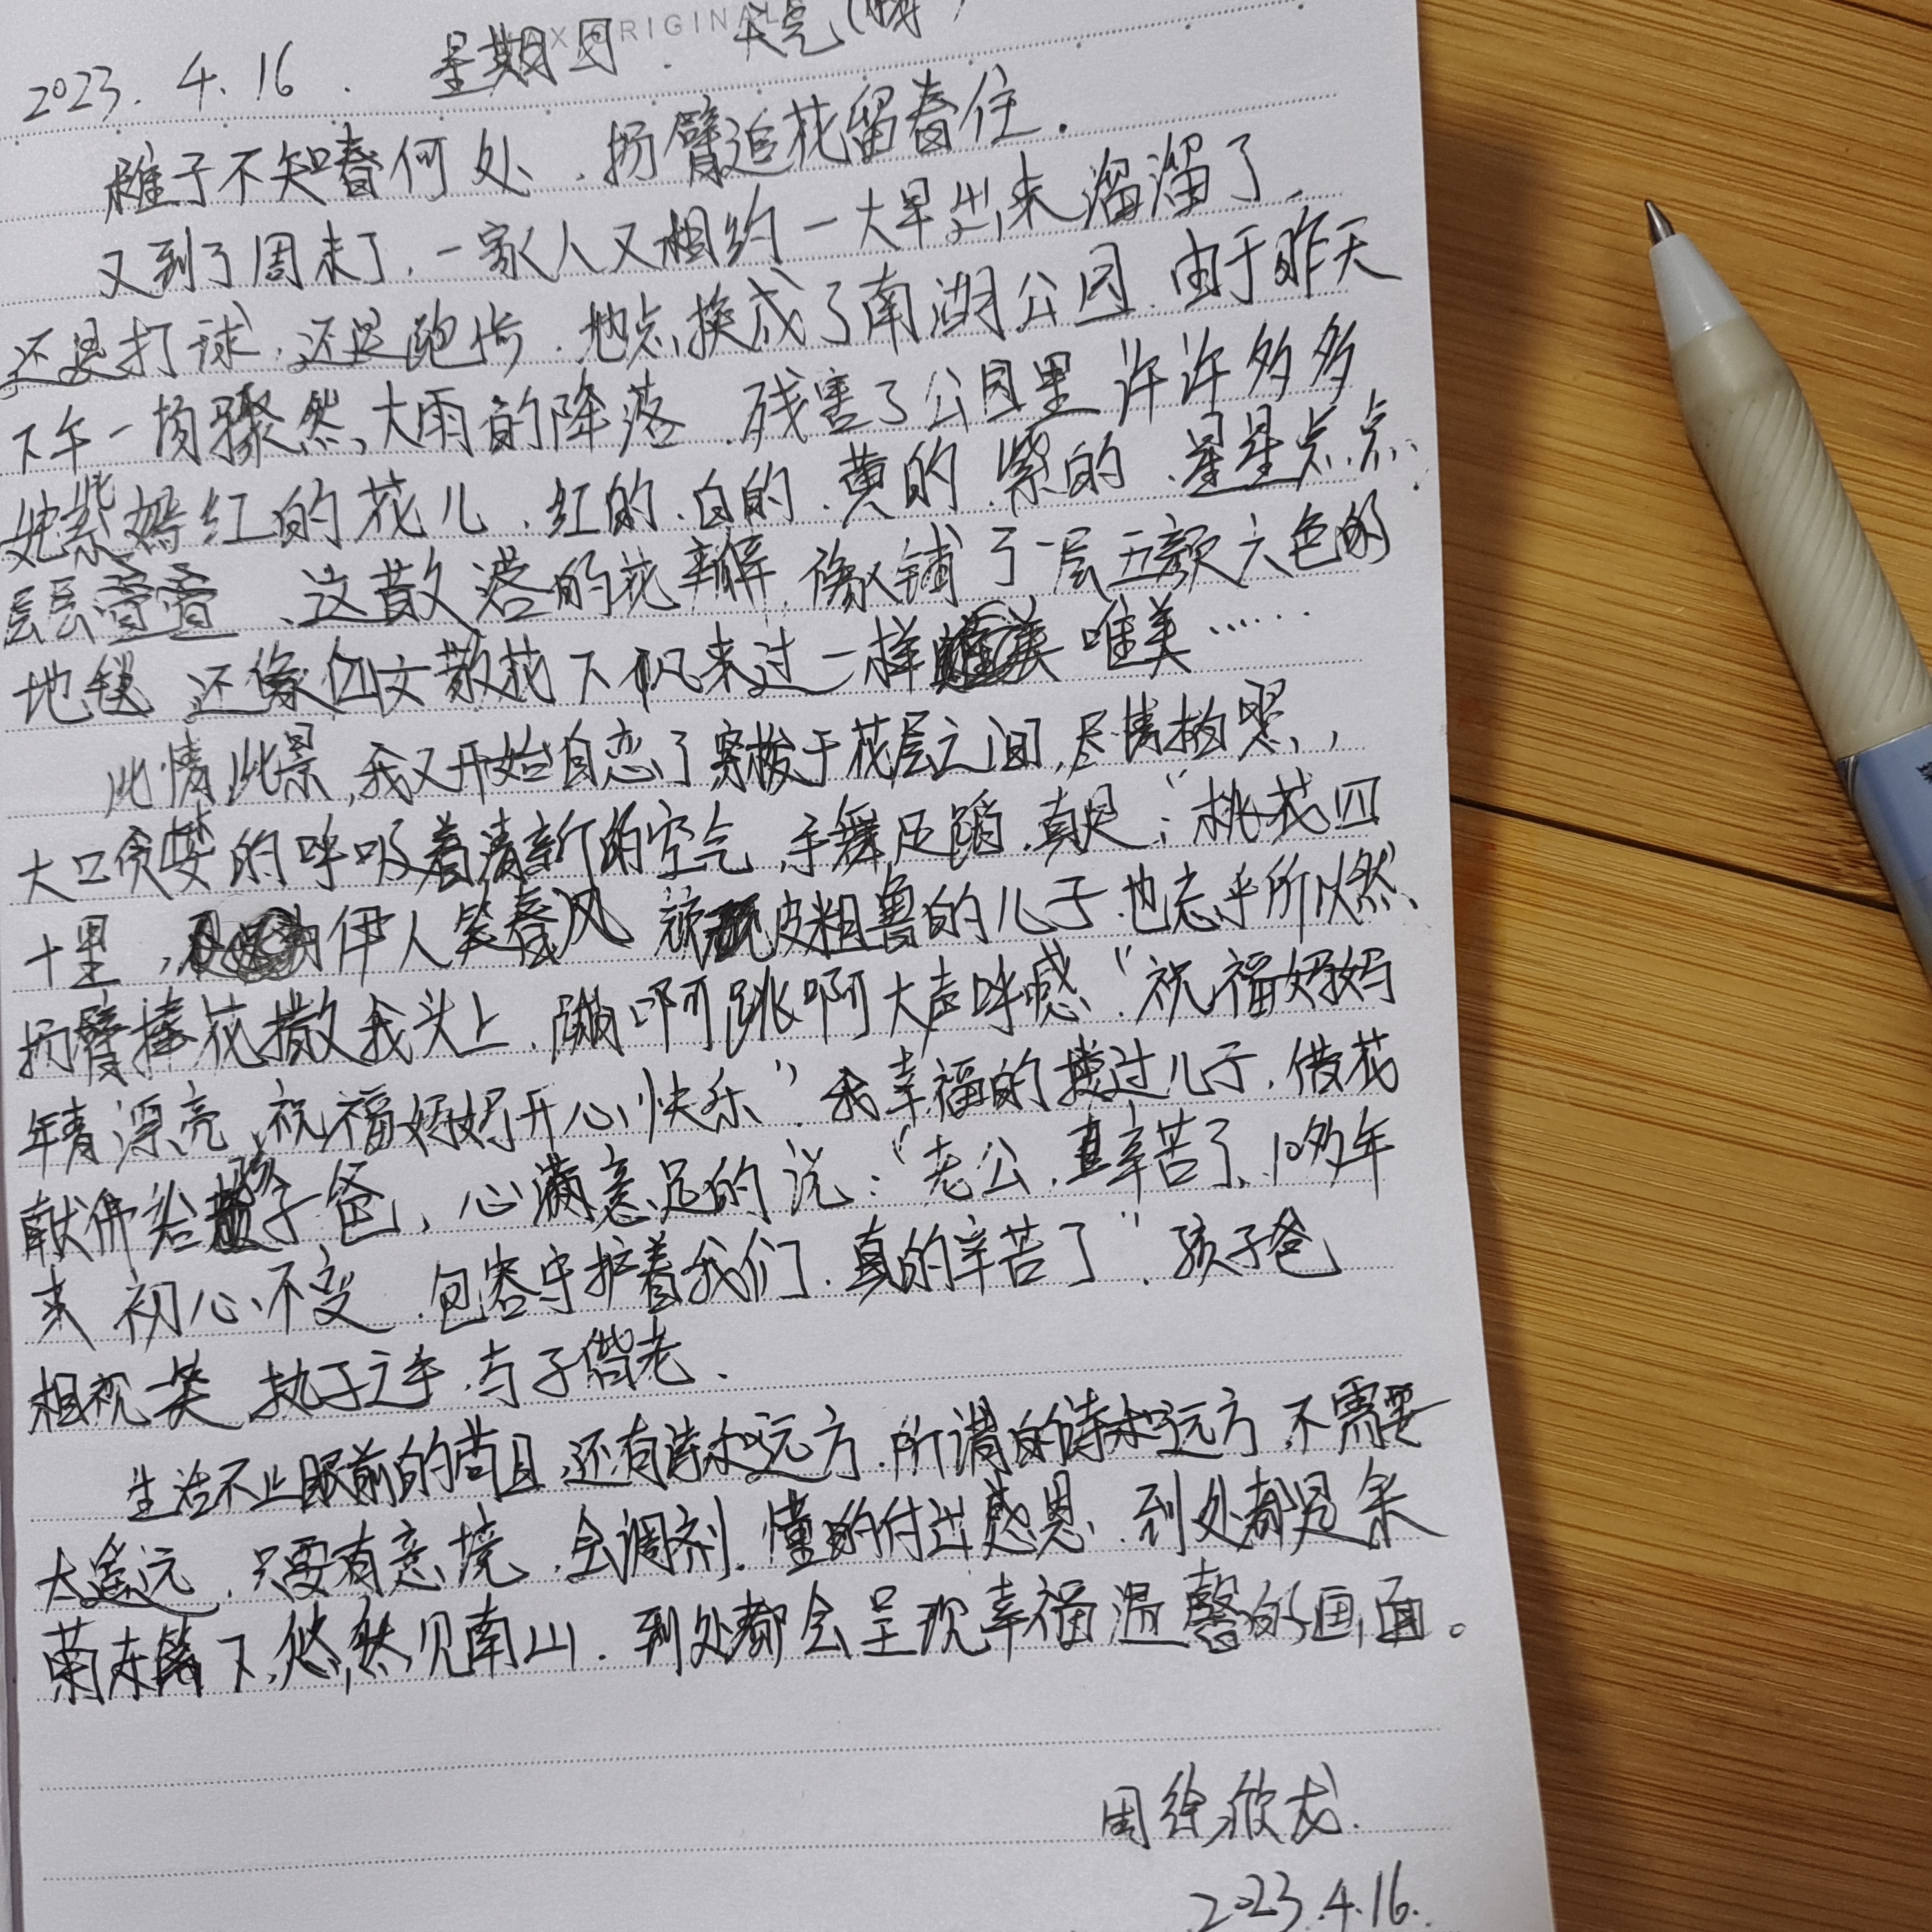 MAX ORIGINAL
2023.4.16. 星期日. 天气(晴)
稚子不知春何处,扬臂追花留春住.
又到了周末了,一家人又相约一大早出来溜溜了,
还是打球,还是跑步,地点换成了南湖公园,由于昨天
下午一场骤然大雨的降落,残害了公园里许许多多
姹紫嫣红的花儿,红的、白的、黄的、紫的、星星点点,
层层叠叠、这散落的花瓣,像铺了一层五颜六色的
地毯 还像仙女散花下凡来过一样 唯美……
此情此景,我又开始自恋了穿梭于花层之间,尽情拍照,
大口贪婪的呼吸着清新的空气,手舞足蹈,真是:“桃花四
十里,伊人笑春风 顽皮粗鲁的儿子也忘乎所以然、
扬臂捧花撒我头上,蹦啊跳啊大声呼喊“祝福妈妈
年青漂亮,祝福妈妈开心快乐”我幸福的搂过儿子,借花
献佛给孩子爸,心满意足的说:“老公,真辛苦了,10多年
来 初心不变,包容守护着我们,真的辛苦了”,孩子爸
相视笑 执子之手,与子偕老.
生活不止眼前的苟且,还有诗和远方.所谓的诗和远方,不需要
太遥远,只要有意境,会调剂,懂的付出感恩,到处都是采
菊东篱下,悠然见南山.到处都会呈现幸福温馨的画面。
周徐欣龙.
2023.4.16.